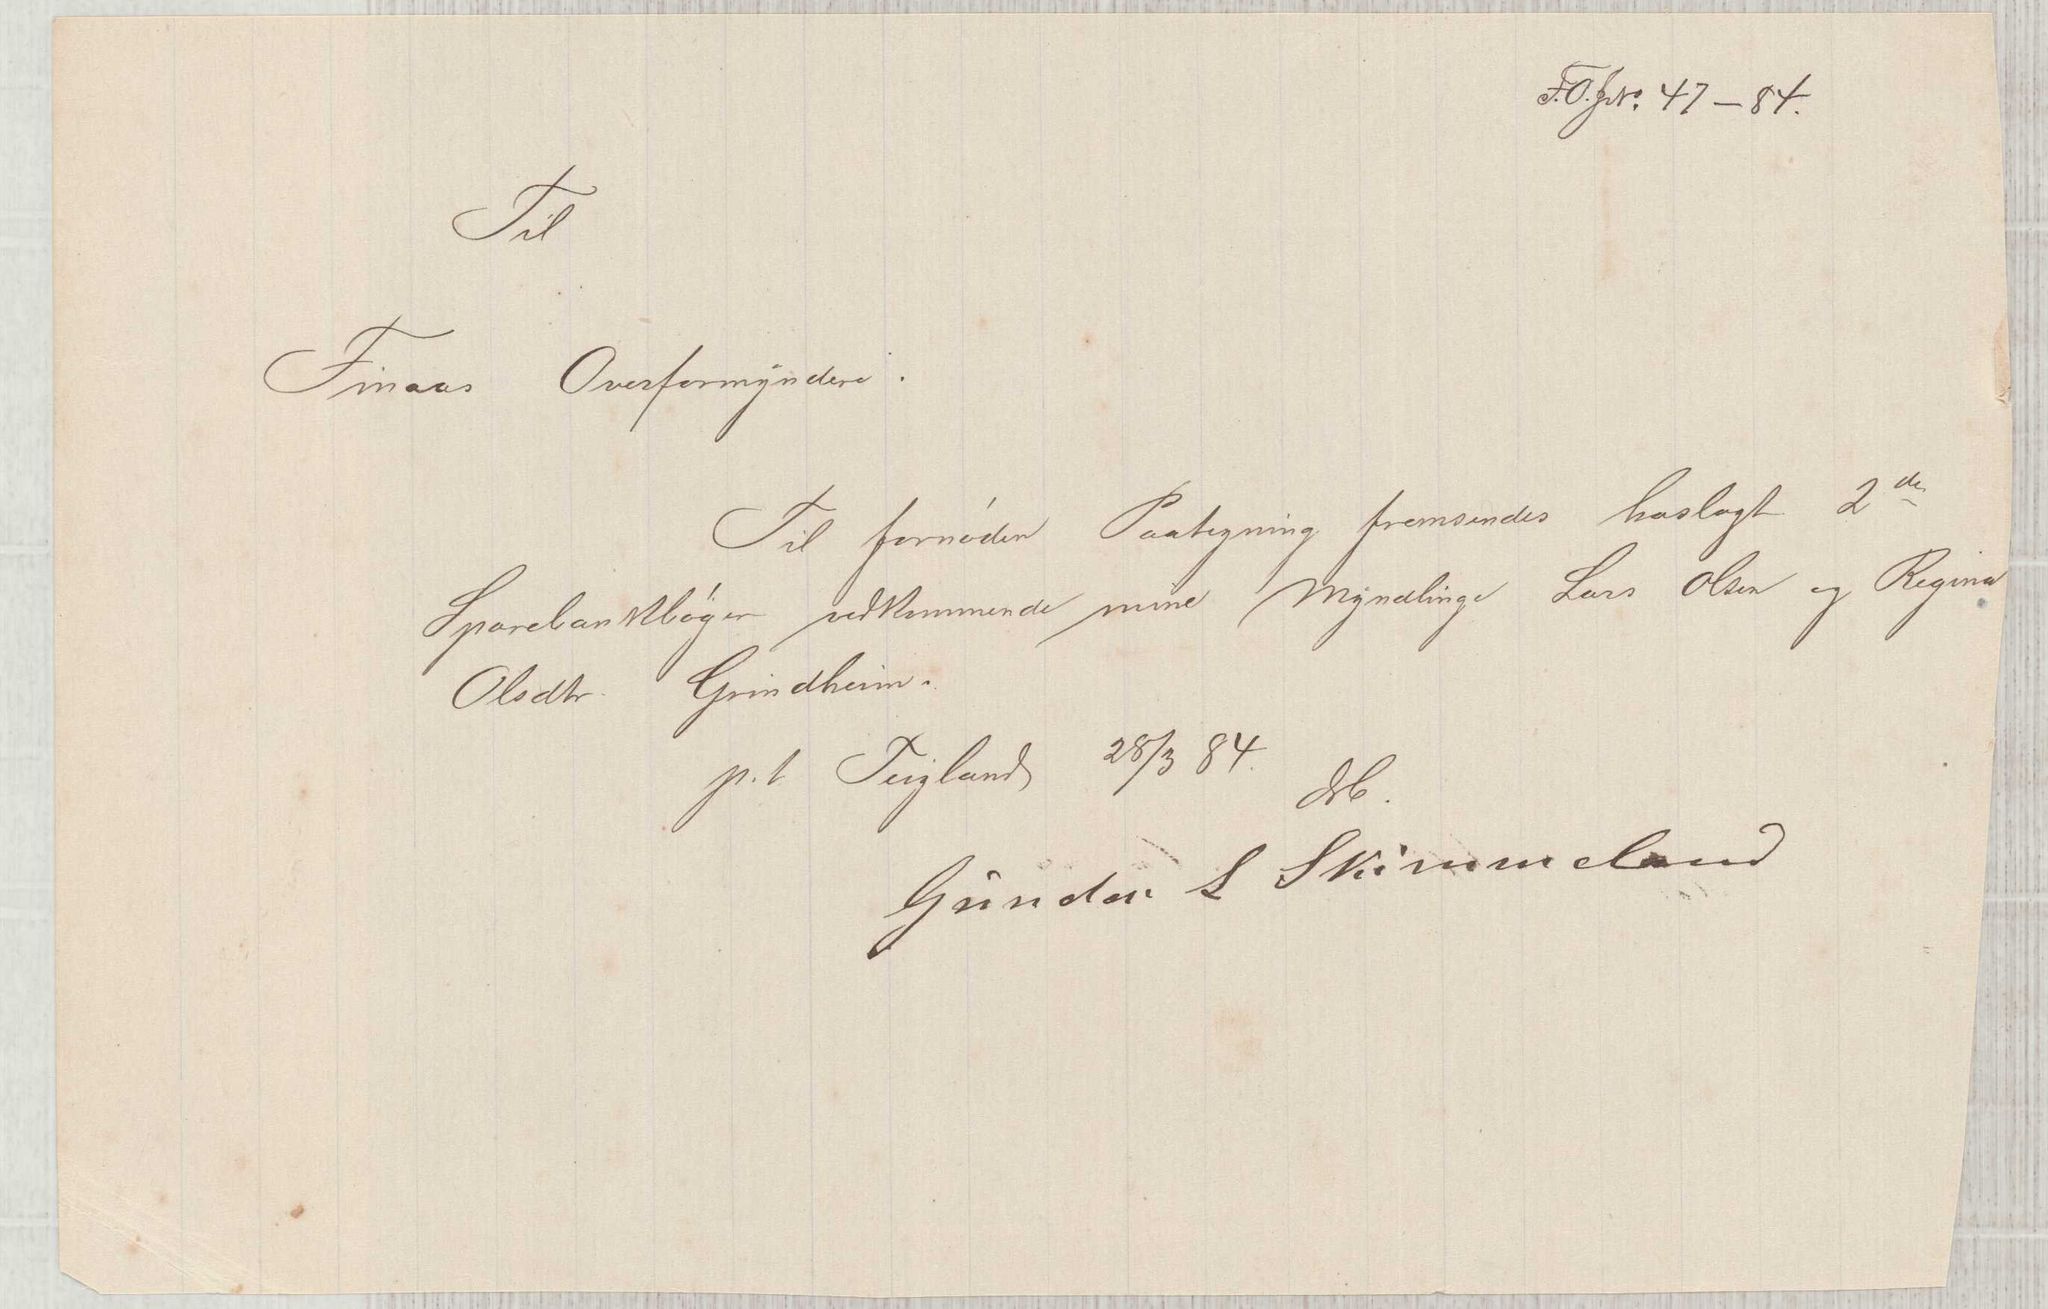 F.O.JNo. 47 – 84.
Til
Finaas Overformynderi.
Til fornøden Paategning fremsendes hoslagt 2de
Sparebankbøger vedkommende mine Myndlinge Lars Olsen og Regina
Olsdtr. Grindheim.
p.t. Teigland 28/3 84.
Gunder L Skimmeland